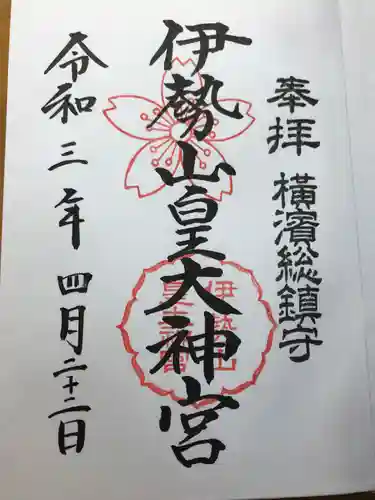 奉拝 横濱総鎮守
伊勢山皇大神宮
伊勢山
皇大神宮
令和三年四月二十二日